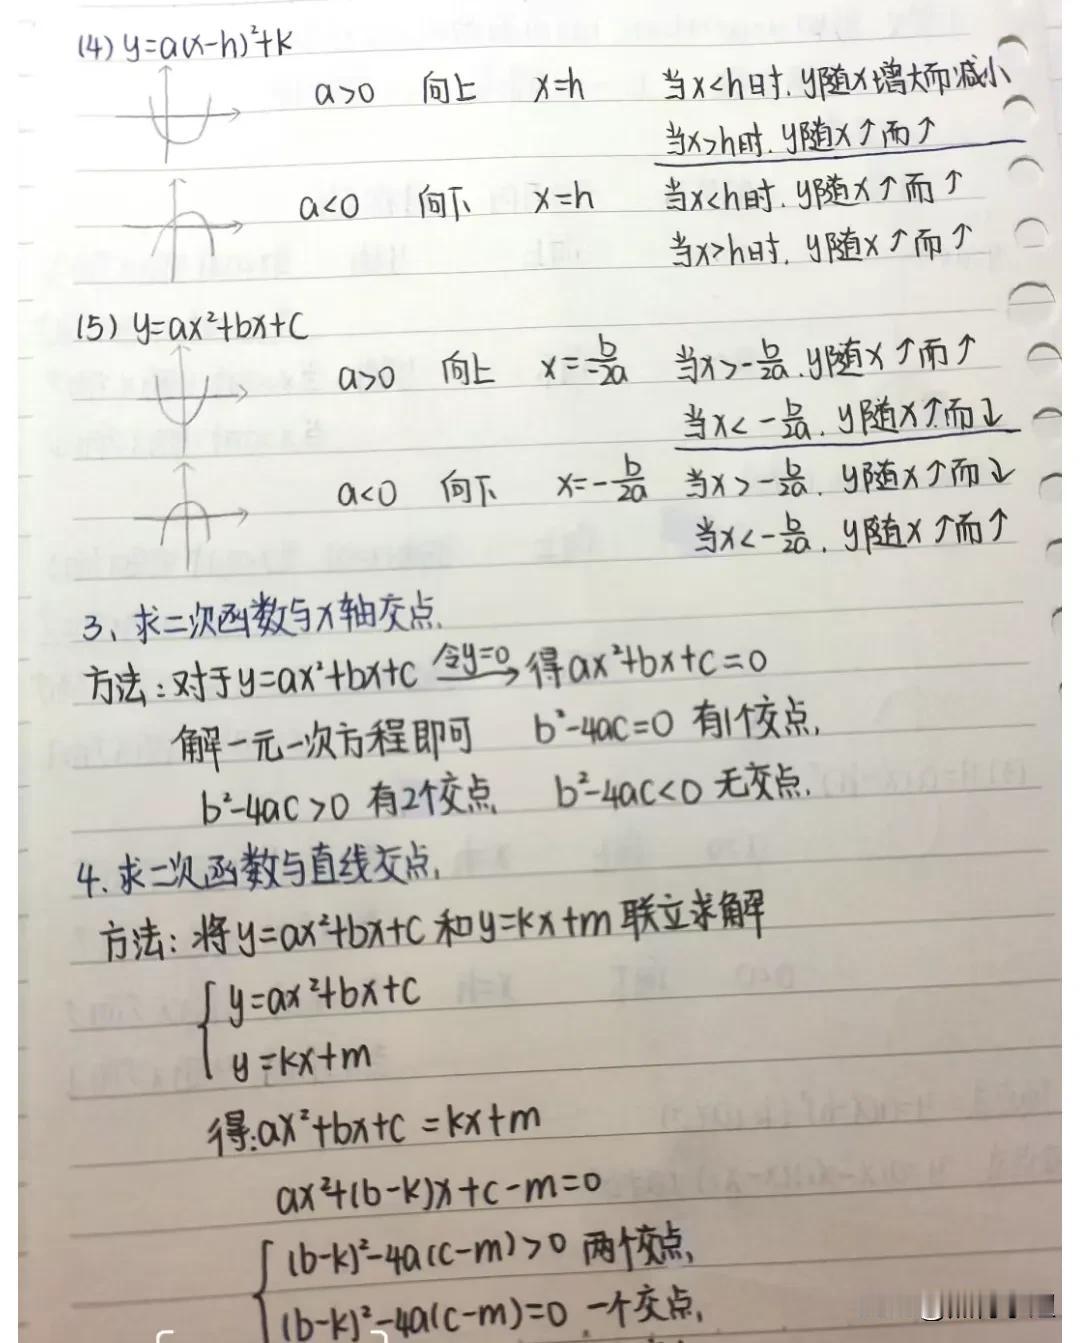 (4) y=a(x-h)²+k
a>0 向上 x=h 当x<h时.y随x增大而减小
当x>h时.y随x↑而↑
a<0 向下 x=h 当x<h时.y随x↑而↑
当x>h时.y随x↑而↑
(5) y=ax²+bx+c
a>0 向上 x=b/-2a 当x>-b/2a.y随x↑而↑
当x<-b/2a.y随x↑而↓
a<0 向下 x=-b/2a 当x>-b/2a.y随x↑而↓
当x<-b/2a.y随x↑而↑
3、求二次函数与x轴交点.
方法:对于y=ax²+bx+c 令y=0→ 得ax²+bx+c=0
解一元一次方程即可 b²-4ac=0 有1个交点.
b²-4ac>0 有2个交点 b²-4ac<0 无交点.
4.求二次函数与直线交点.
方法:将y=ax²+bx+c和y=kx+m联立求解
{y=ax²+bx+c
y=kx+m
得:ax²+bx+c=kx+m
ax²+(b-k)x+c-m=0
{(b-k)²-4a(c-m)>0 两个交点.
(b-k)²-4a(c-m)=0 一个交点.